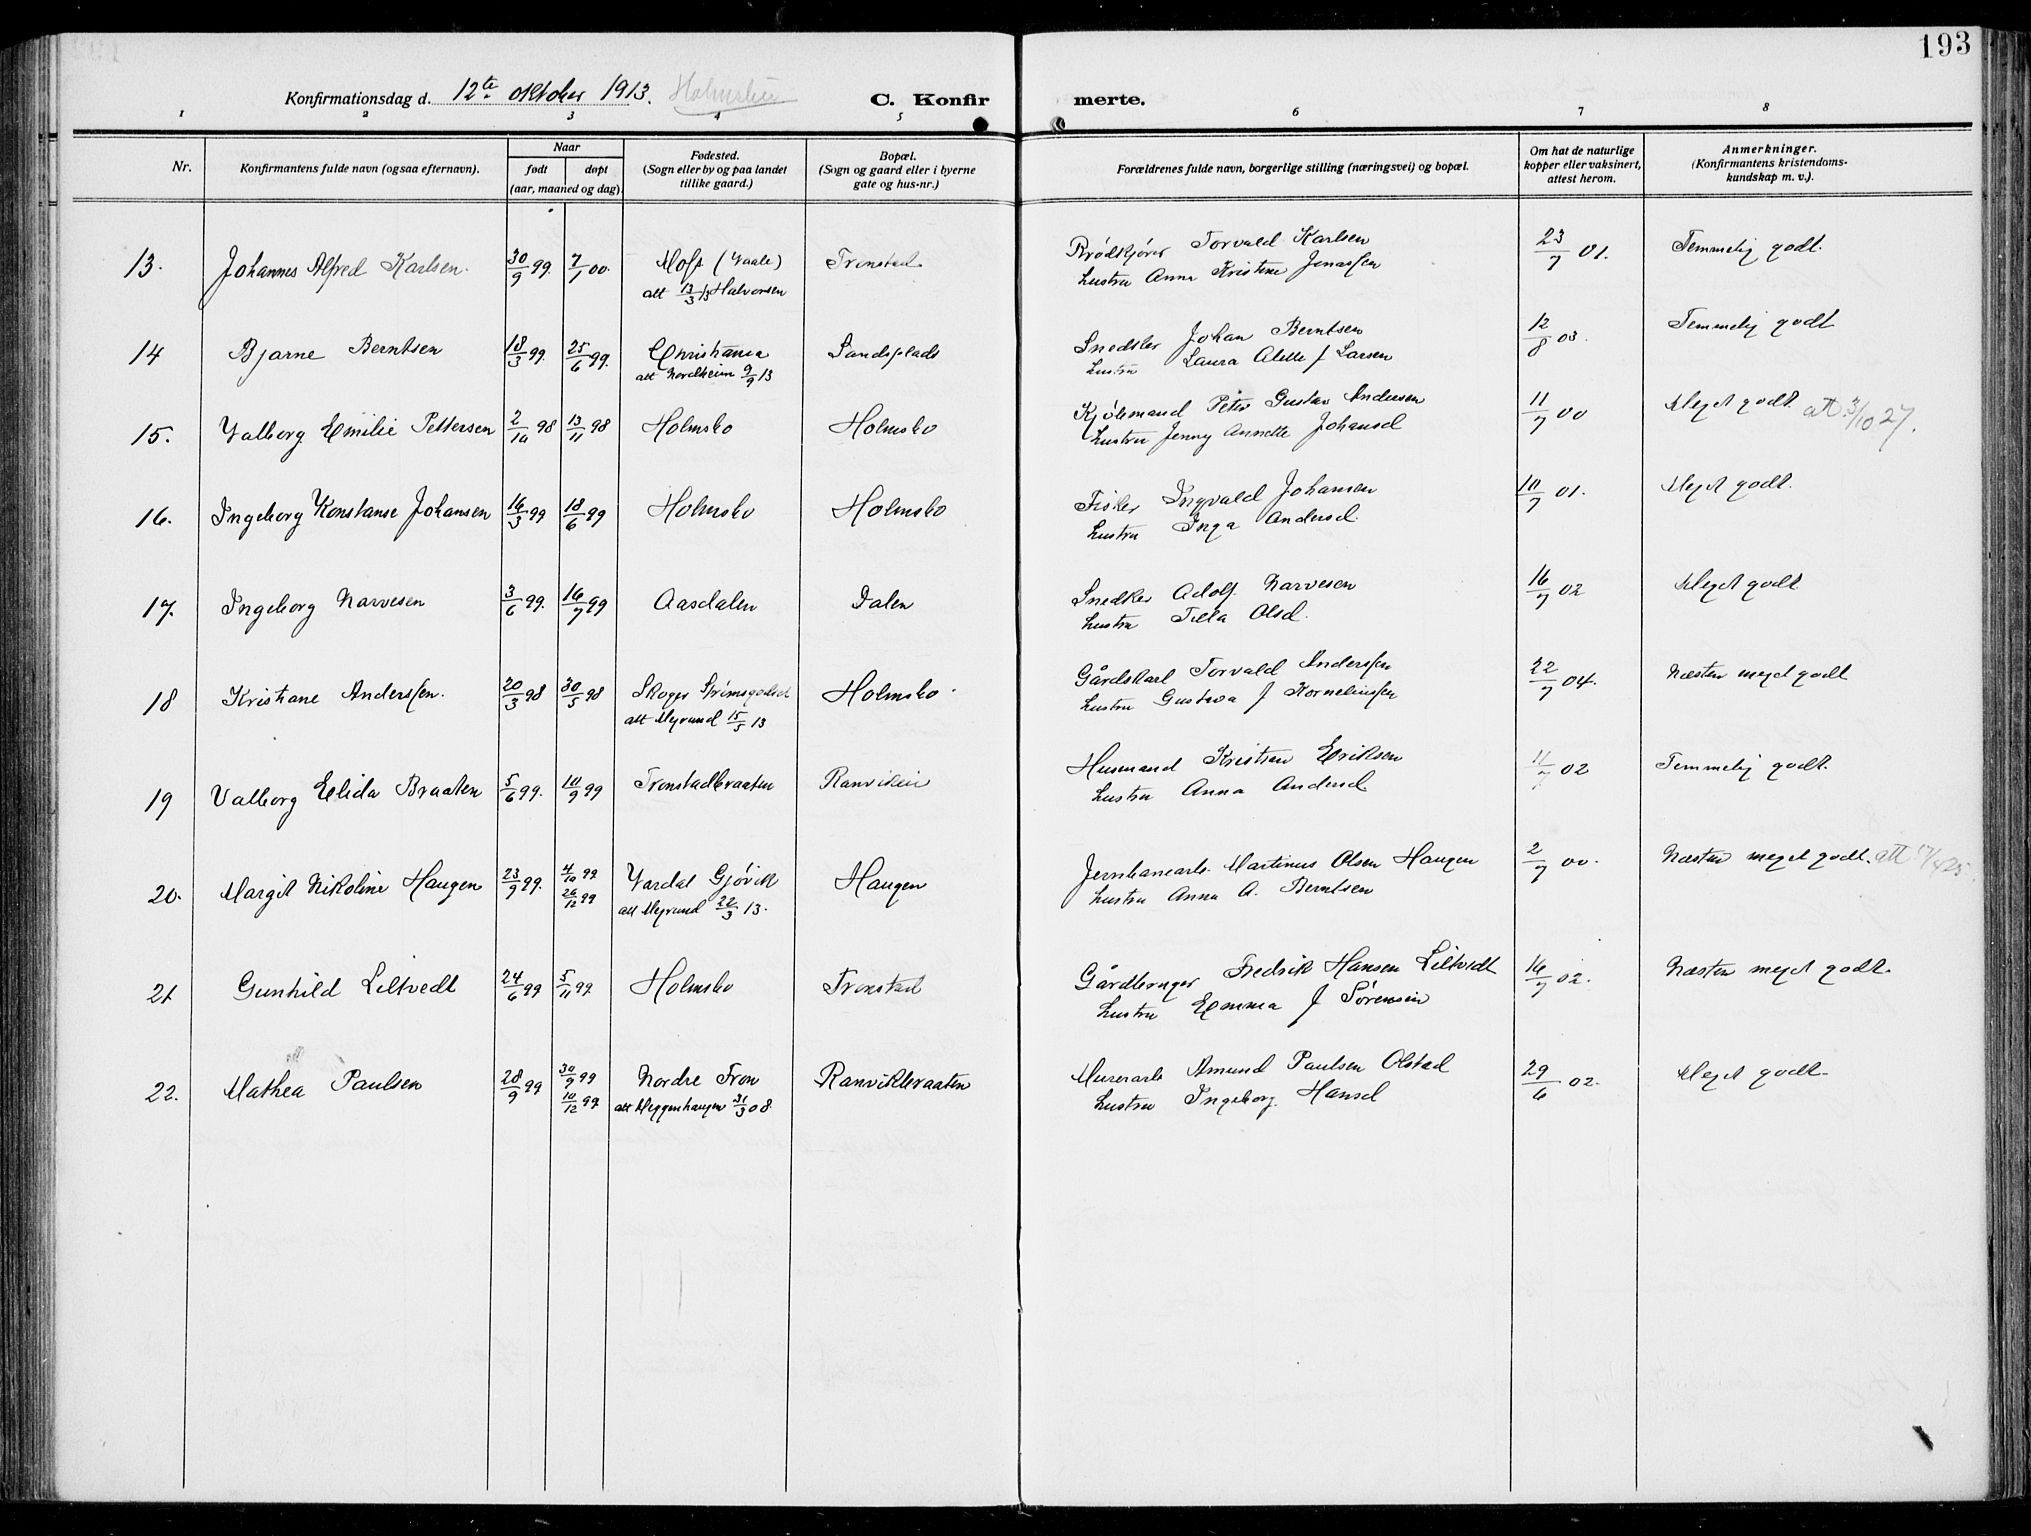 193
Konfirmationsdag d. 12te oktober 1913. C. Konfirmerte.
1 2 3 4 5 6 7 8
Nr.
Konfirmantens fulde navn (ogsaa efternavn).
Naar
født døpt
(aar, maaned og dag)
Fødested.
(Sogn eller by og paa landet
tillike gaard.)
Bopæl.
(Sogn og gaard eller i byerne
gate og hus-nr.)
Forældrenes fulde navn, borgerlige stilling (næringsvei) og bopæl.
Om hat de naturlige
kopper eller vaksinert,
attest herom.
Anmerkninger.
(Konfirmantens kristendoms-
kundskap m. v.).
13. Johannes Alfred Karlsen. 30/9 99. 7/1 00. Moss (Vaale) Tronstad Brødkjører Torvald Karlsen 23/7 01. Temmelig godt.
att 13/3 13 Halvorsen Hustru Anna Kristine Jonassen
14 Bjarne Berntsen 18/3 99. 25/6 99. Christiania Sandsplads Snedker Johan Berntsen 12/8 03. Temmelig godt
att Nordheim 9/9 13 Hustru Laura Alette J Larsen
15. Valborg Emilie Pettersen 2/10 98 13/11 98 Holmsbo Holmsbo Kjølemand Peter Gustav Andersen 11/7 00 Meget godt. att. 3/10 27.
Hustru Jenny Annette Johansd
16. Ingeborg Konstanse Johansen 16/3 99 18/6 99 Holmsbo Holmsbo Fisker Ingvald Johansen 10/7 01. Meget godt.
Hustru Inga Andersd.
17. Ingeborg Narvesen 3/6 99. 16/7 99 Aasdalen Dalen Snedker Adolf Narvesen 16/7 02 Meget godt
Hustru Tilla Olsd.
18 Kristiane Anderssen. 20/3 98 30/5 98 Skoger Strømsgodset Holmsbo. Gårdskarl Torvald Anderssen 22/7 04. Næsten meget godt
att Myrund 15/5 13 Hustru Gustava J Korneliussen
19 Valborg Elida Braaten 5/6 99. 10/9 99 Tronstadbraaten Ranviken Husmand Kristian Eriksen 11/7 02 Temmelig godt.
Hustru Anna Andersd
20. Margit Nikoline Haugen 23/9 99. 4/10 99 26/12 99 Vardal Gjøvik Haugen Jernbanearb. Martinus Olsen Haugen 2/7 00. Næsten meget godt. att
att Myrund 22/3 13. Hustru Anna A. Berntsen
21 Gunhild Liltvedt 24/6 99 5/11 99 Holmsbo Tronstad Gårdbruger Fredrik Hansen Liltvedt 16/7 02. Næsten meget godt.
Hustru Emma J Sørensen
22. Mathea Paulsen 28/9 99 30/9 99 10/12 99 Nordre Fron Ranvikbraaten Murerarb Amund Paulsen Olstad 29/6 02. Meget godt.
att Meggenhaugen 31/3 08. Hustru Ingeborg Hansd